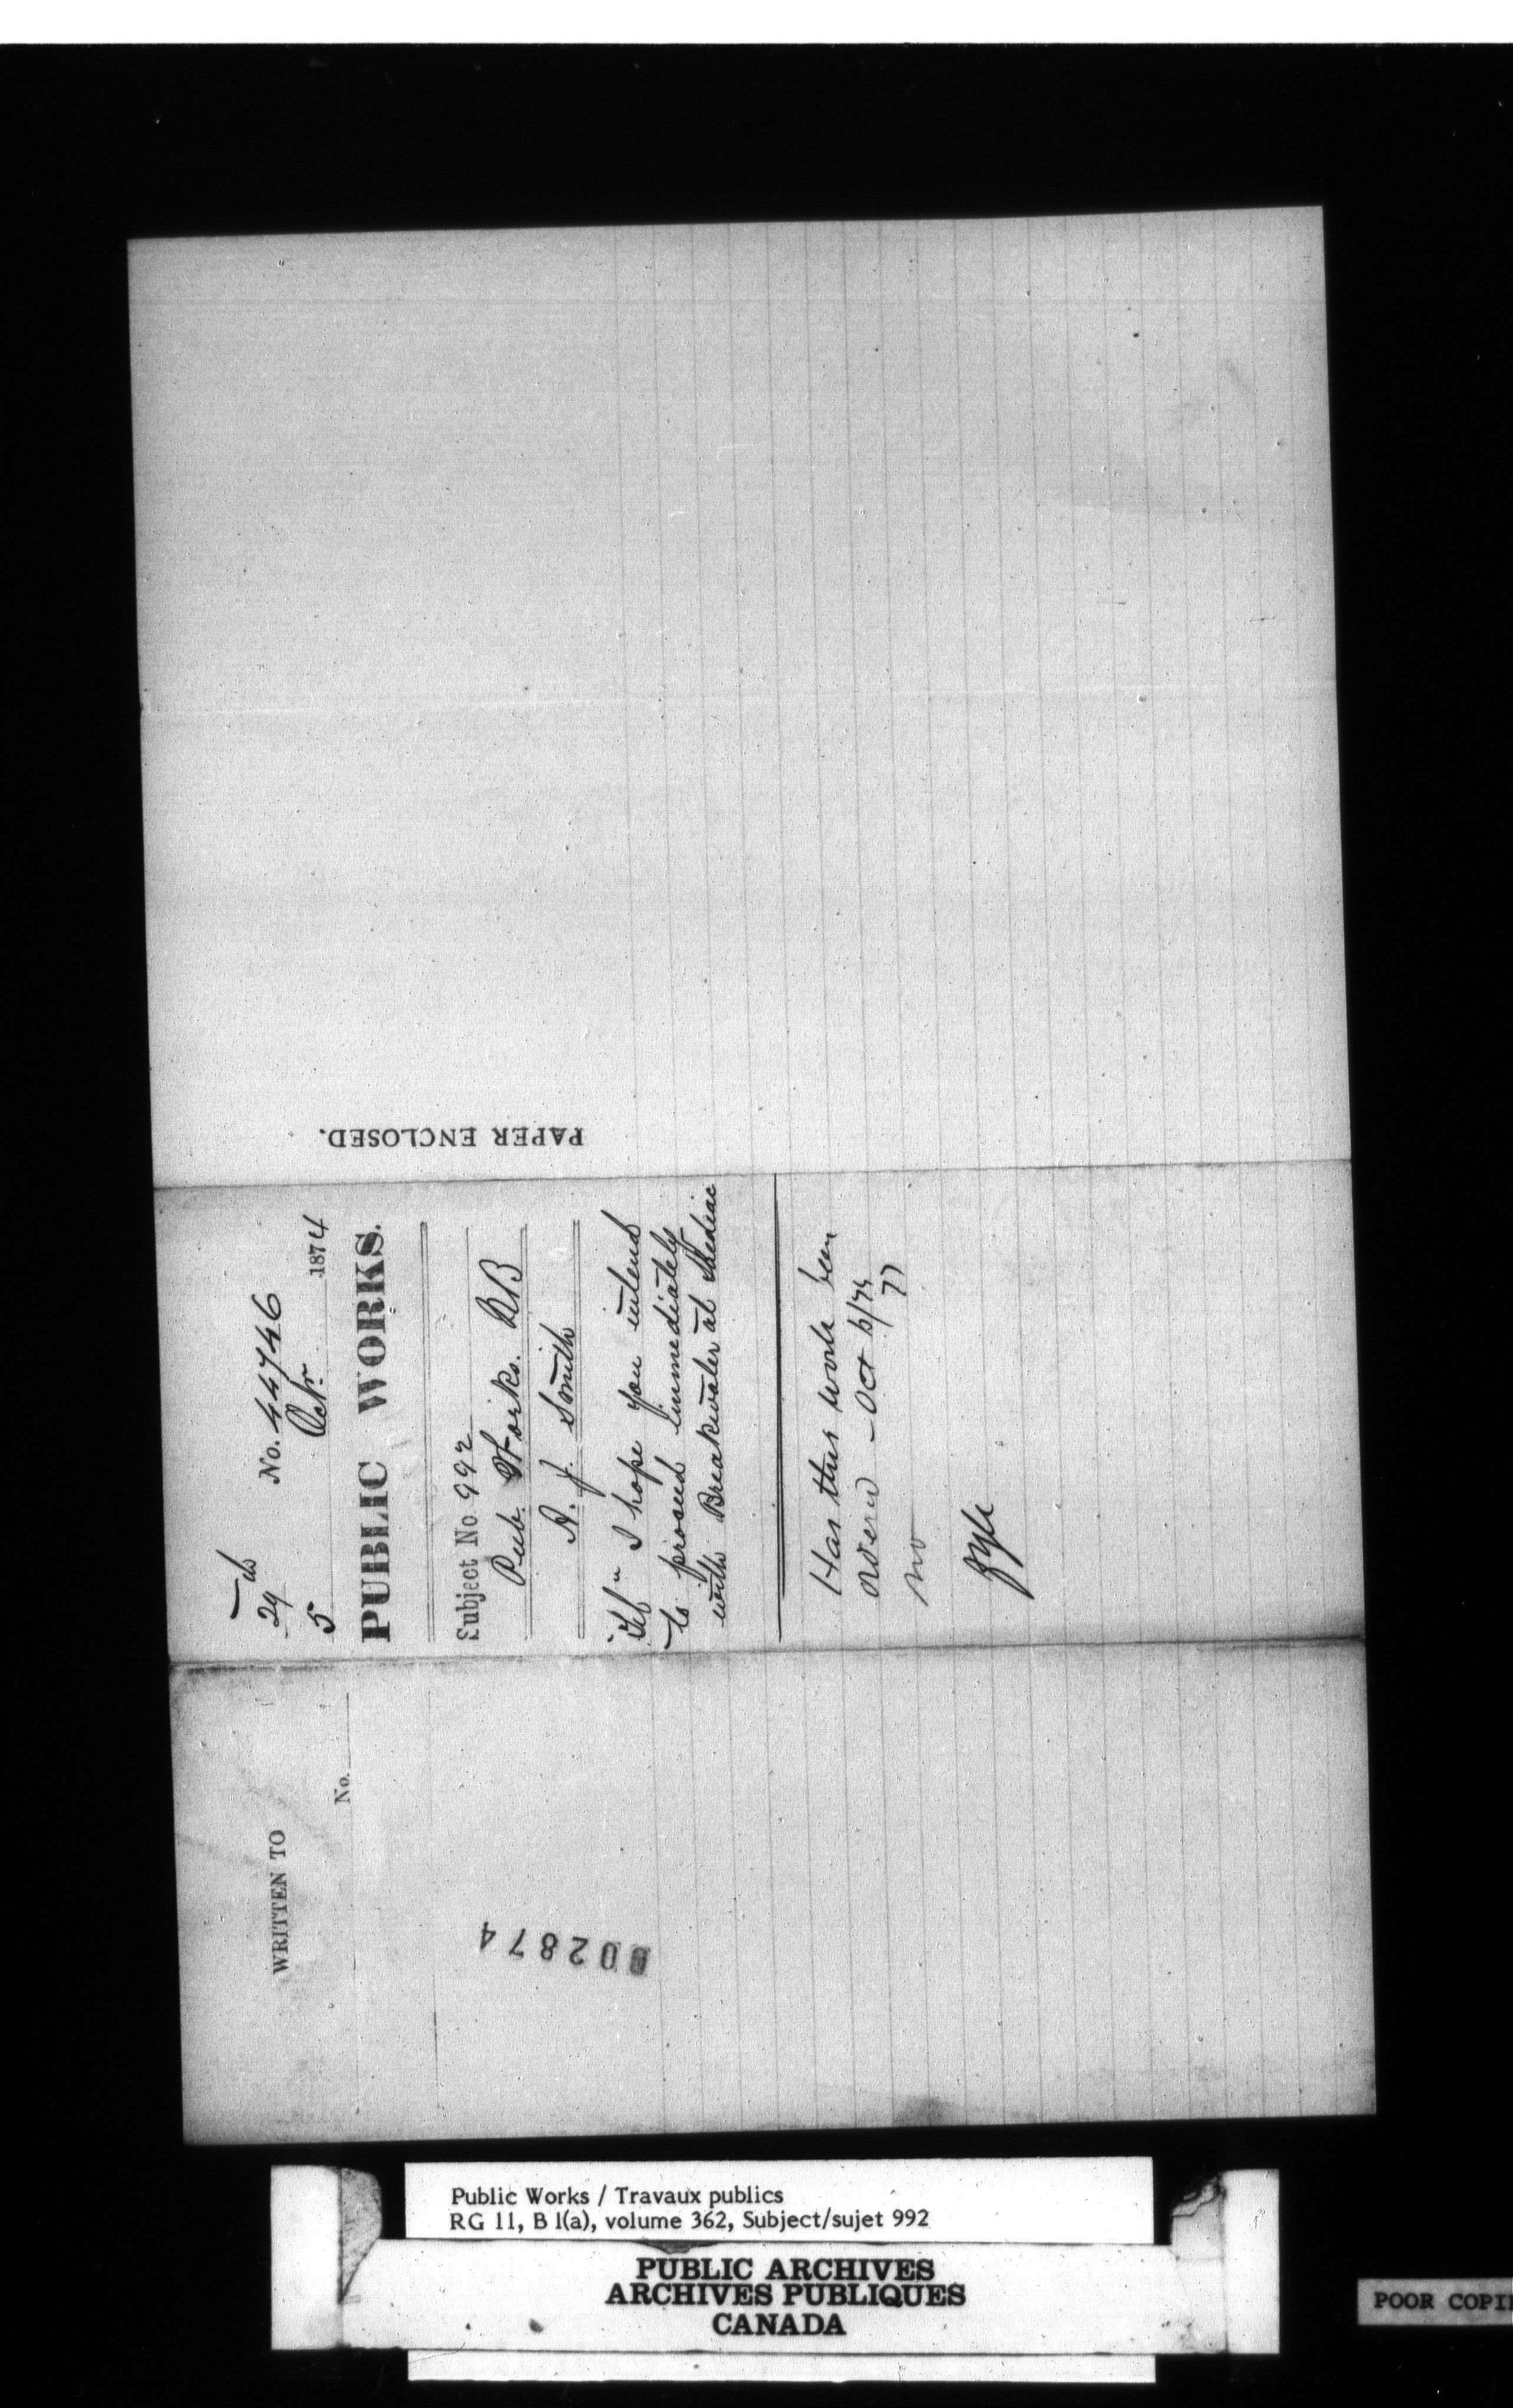 29th
5
No. 44746
Octr
1874
PUBLIC WORKS.
Subject No. 992
Pub. Works. NB
A. J. Smith
Tel " I hope you intend
to proceed immediately
with Breakwater at Shediac
Has this work been
orderd - Oct 6/74
no
PAPER ENCLOSED.
WRITTEN TO
No.
002874
Public Works / Travaux publics
RG 11, B 1(a), volume 362, Subject/sujet 992
PUBLIC ARCHIVES
ARCHIVES PUBLIQUES
CANADA
POOR COPI